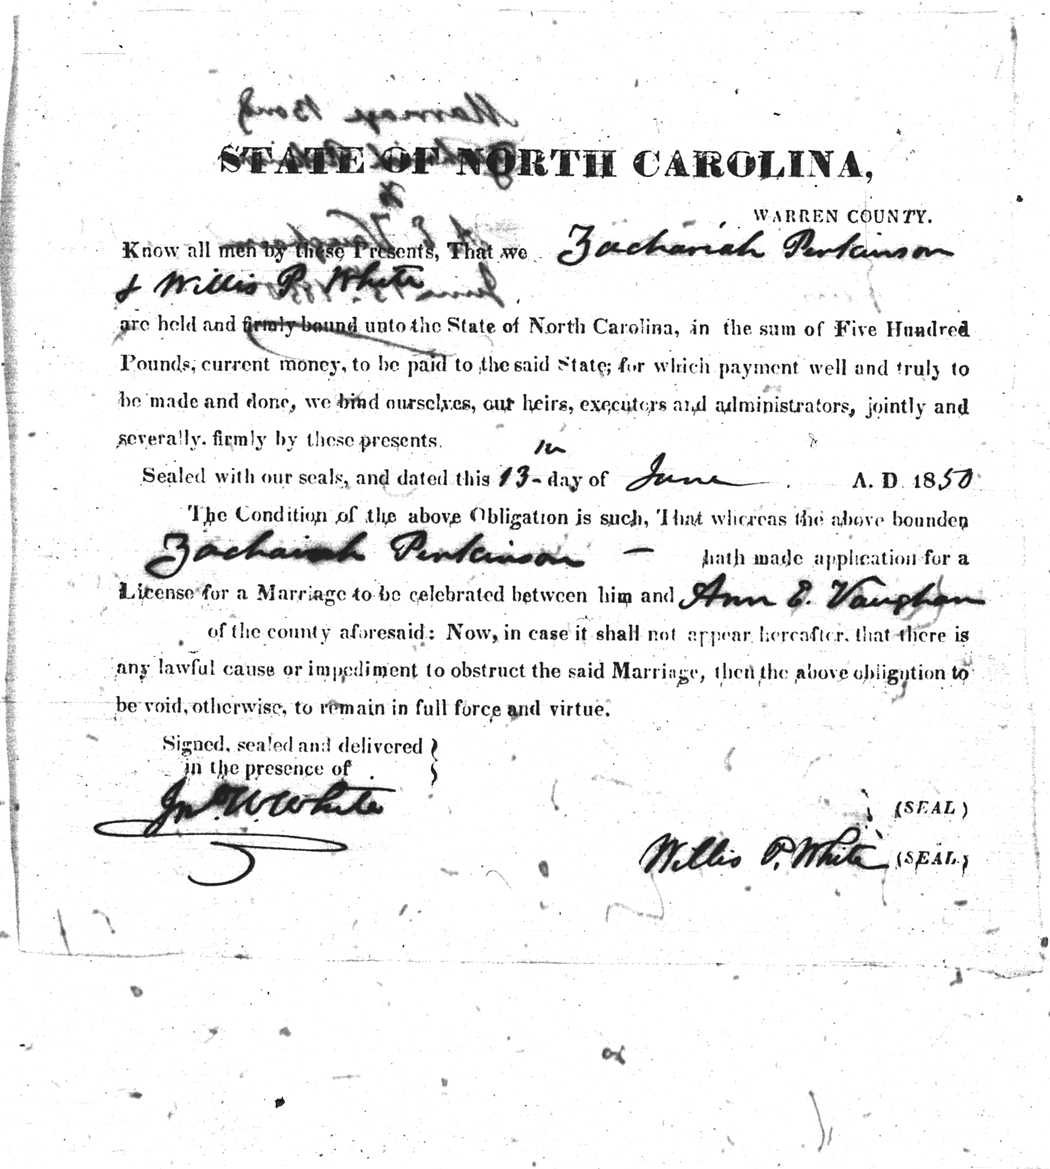 Marriage Bond
STATE OF NORTH CAROLINA,
to
WARREN COUNTY.
A E Vaughan
Know all men by these Presents, That we Zachariah Perkinson
& Willis P. White
June 13. 1850
are held and firmly bound unto the State of North Carolina, in the sum of Five Hundred
Pounds, current money, to be paid to the said State; for which payment well and truly to
be made and done, we bind ourselves, our heirs, executors and administrators, jointly and
severally, firmly by these presents.
Sealed with our seals, and dated this 13th day of June A. D 1850
The Condition of the above Obligation is such, That whereas the above bounden
Zachariah Perkinson — hath made application for a
License for a Marriage to be celebrated between him and Ann E. Vaughan
of the county aforesaid: Now, in case it shall not appear hereafter, that there is
any lawful cause or impediment to obstruct the said Marriage, then the above obligation to
be void, otherwise, to remain in full force and virtue.
Signed, sealed and delivered
in the presence of
Jno. W. White
(SEAL)
Willis P. White (SEAL)